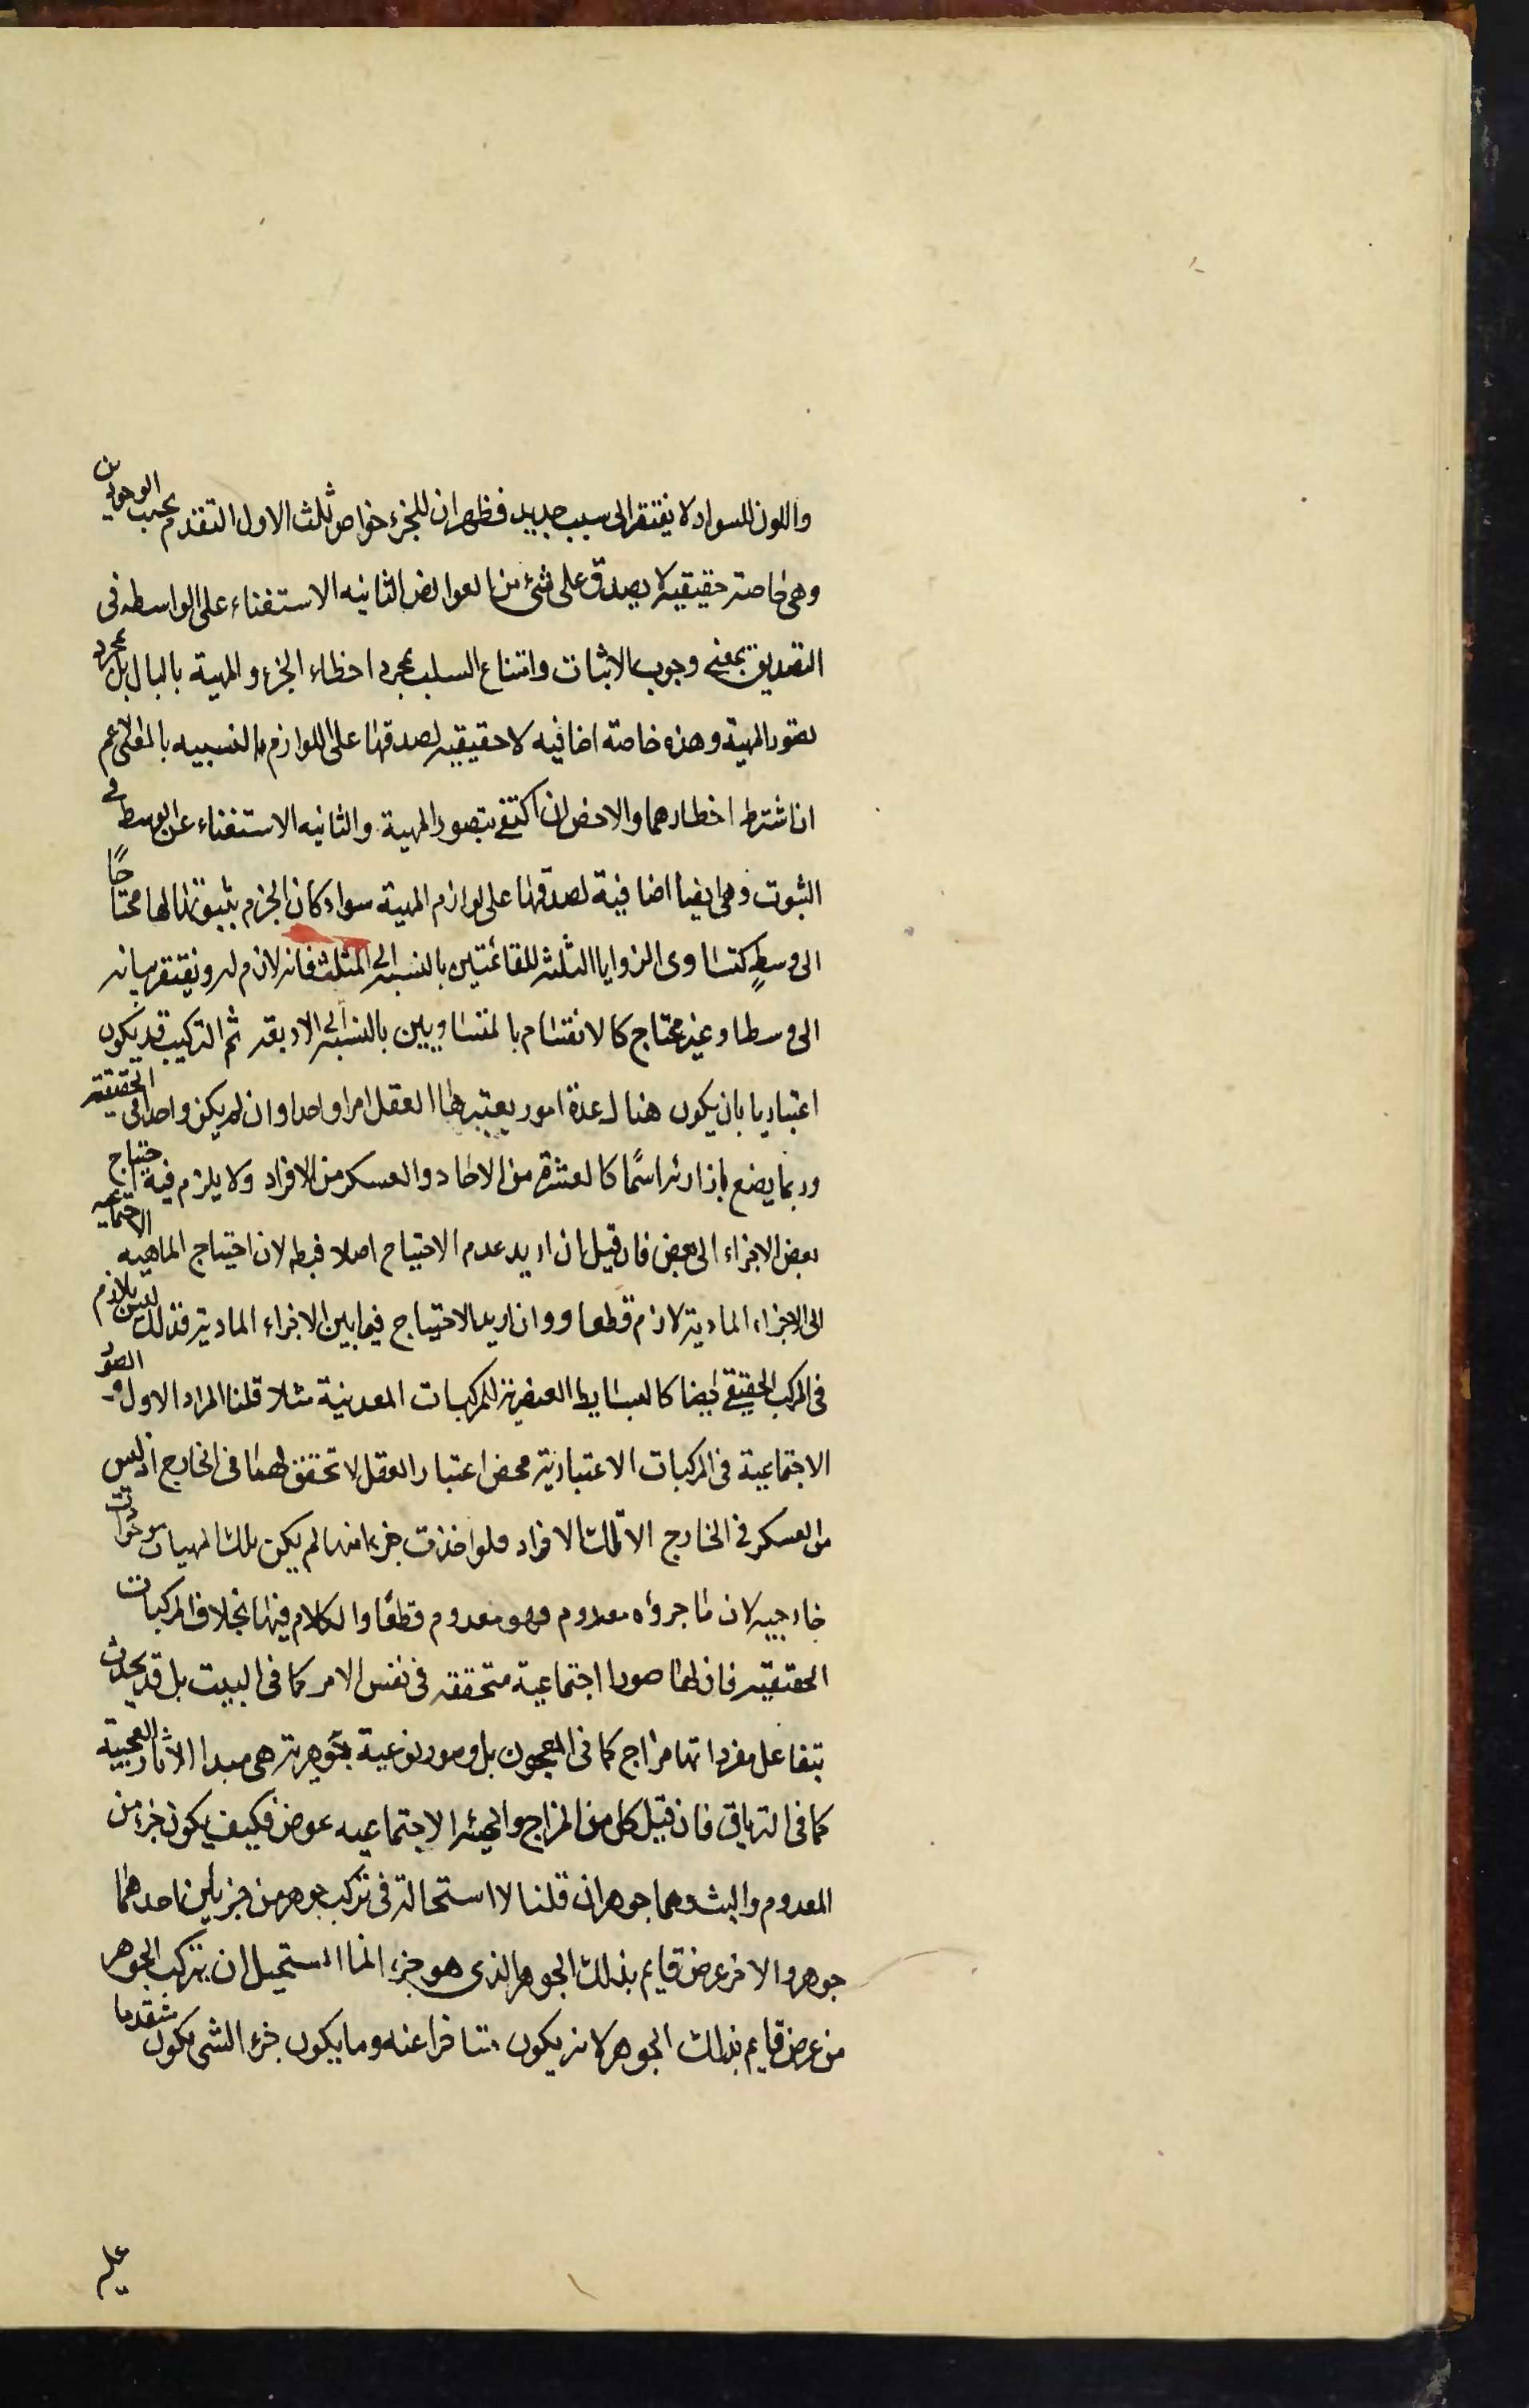 واللون للسواد لا يفتقر الى سبب جديد فظهر ان للجزء خواص ثلث الاول التقدم بحسب الوجودين
وهى خاصة حقيقيه لا يصدق على شئ من العوارض الثانيه الاستغناء على الواسطه فى
التصديق بمعنى وجوب الاثبات وامتناع السلب بمجرد اخطاء الجزء والمهية بالبال بل بمجرد
تصور المهية وهذه خاصة اضافيه لا حقيقيه لصدقها على اللوازم بالنسبيه بالمعنى الاعم
ان اشترط اخطارهما والاخص ان اكتفى بتصور المهية والثانيه الاستغناء عن الوسط فى
الثبوت وهى ايضا اضافية لصدقها على لوازم المهية سواء كان الجزم بثبوتها لها محتاجًا
الى وسطٍ كتساوى الزوايا الثلث للقائمتين بالنسبه الى المثلث فانه لازم له ويفتقر بيانه
الى وسط او غير محتاج كالانقسام بالمتساويين بالنسبه الى الاربعه ثم التركيب قد يكون
اعتباريا بان يكون هناك عدة امور يعتبرها العقل امرا واحدا وان لم يكن واحدا فى الحقيقة
وربما يضع بازائه اسمًا كالعشرة من الاحاد والعسكر من الافراد ولا يلزم فيه احتياج
بعض الاجزاء الى بعض فان قيل ان اريد عدم الاحتياج اصلا فبط لان احتياج الماهيه الاجتماعيه
الى الاجزاء المادية لازم قطعا ووان اريد الاحتياج فيما بين الاجزاء المادية فذلك ليس بلازم
فى المركب الحقيقى ايضا كالبسايط العنصرية للمركبات المعدنية مثلا قلنا المراد الاول و الصور
الاجتماعية فى المركبات الاعتبارية محض اعتبار العقل لا تحقق لهما فى الخارج اذ ليس
من العسكر فى الخارج الا تلك الافراد ولو اخذت جزءا منها لم يكن تلك المهيات موجودات
خارجيه لان ما جزؤه معدوم فهو معدوم قطعًا والكلام فيها بخلاف المركبات
الحقيقيه فان لها صورا اجتماعية متحققه فى نفس الامر كما فى البيت بل قد يحدث
بتفاعل مفرداتها مزاج كما فى المعجون بل وصور نوعية جوهرية هى مبدا الاثار العجيبة
كما فى الترياق فان قيل كل من المزاج والهيئه الاجتماعيه عرض فكيف يكون جزء من
المعدوم والبيت وهما جوهران قلنا لا استحالة فى تركب جوهر من جزئين احدهما
جوهر والاخر عرض قايم بذلك الجوهر الذى هو جزء انما المستحيل ان يتركب الجوهر
من عرض قايم بذلك الجوهر لانه يكون متاخرا عنه وما يكون جزء الشى يكون متقدما
عليه